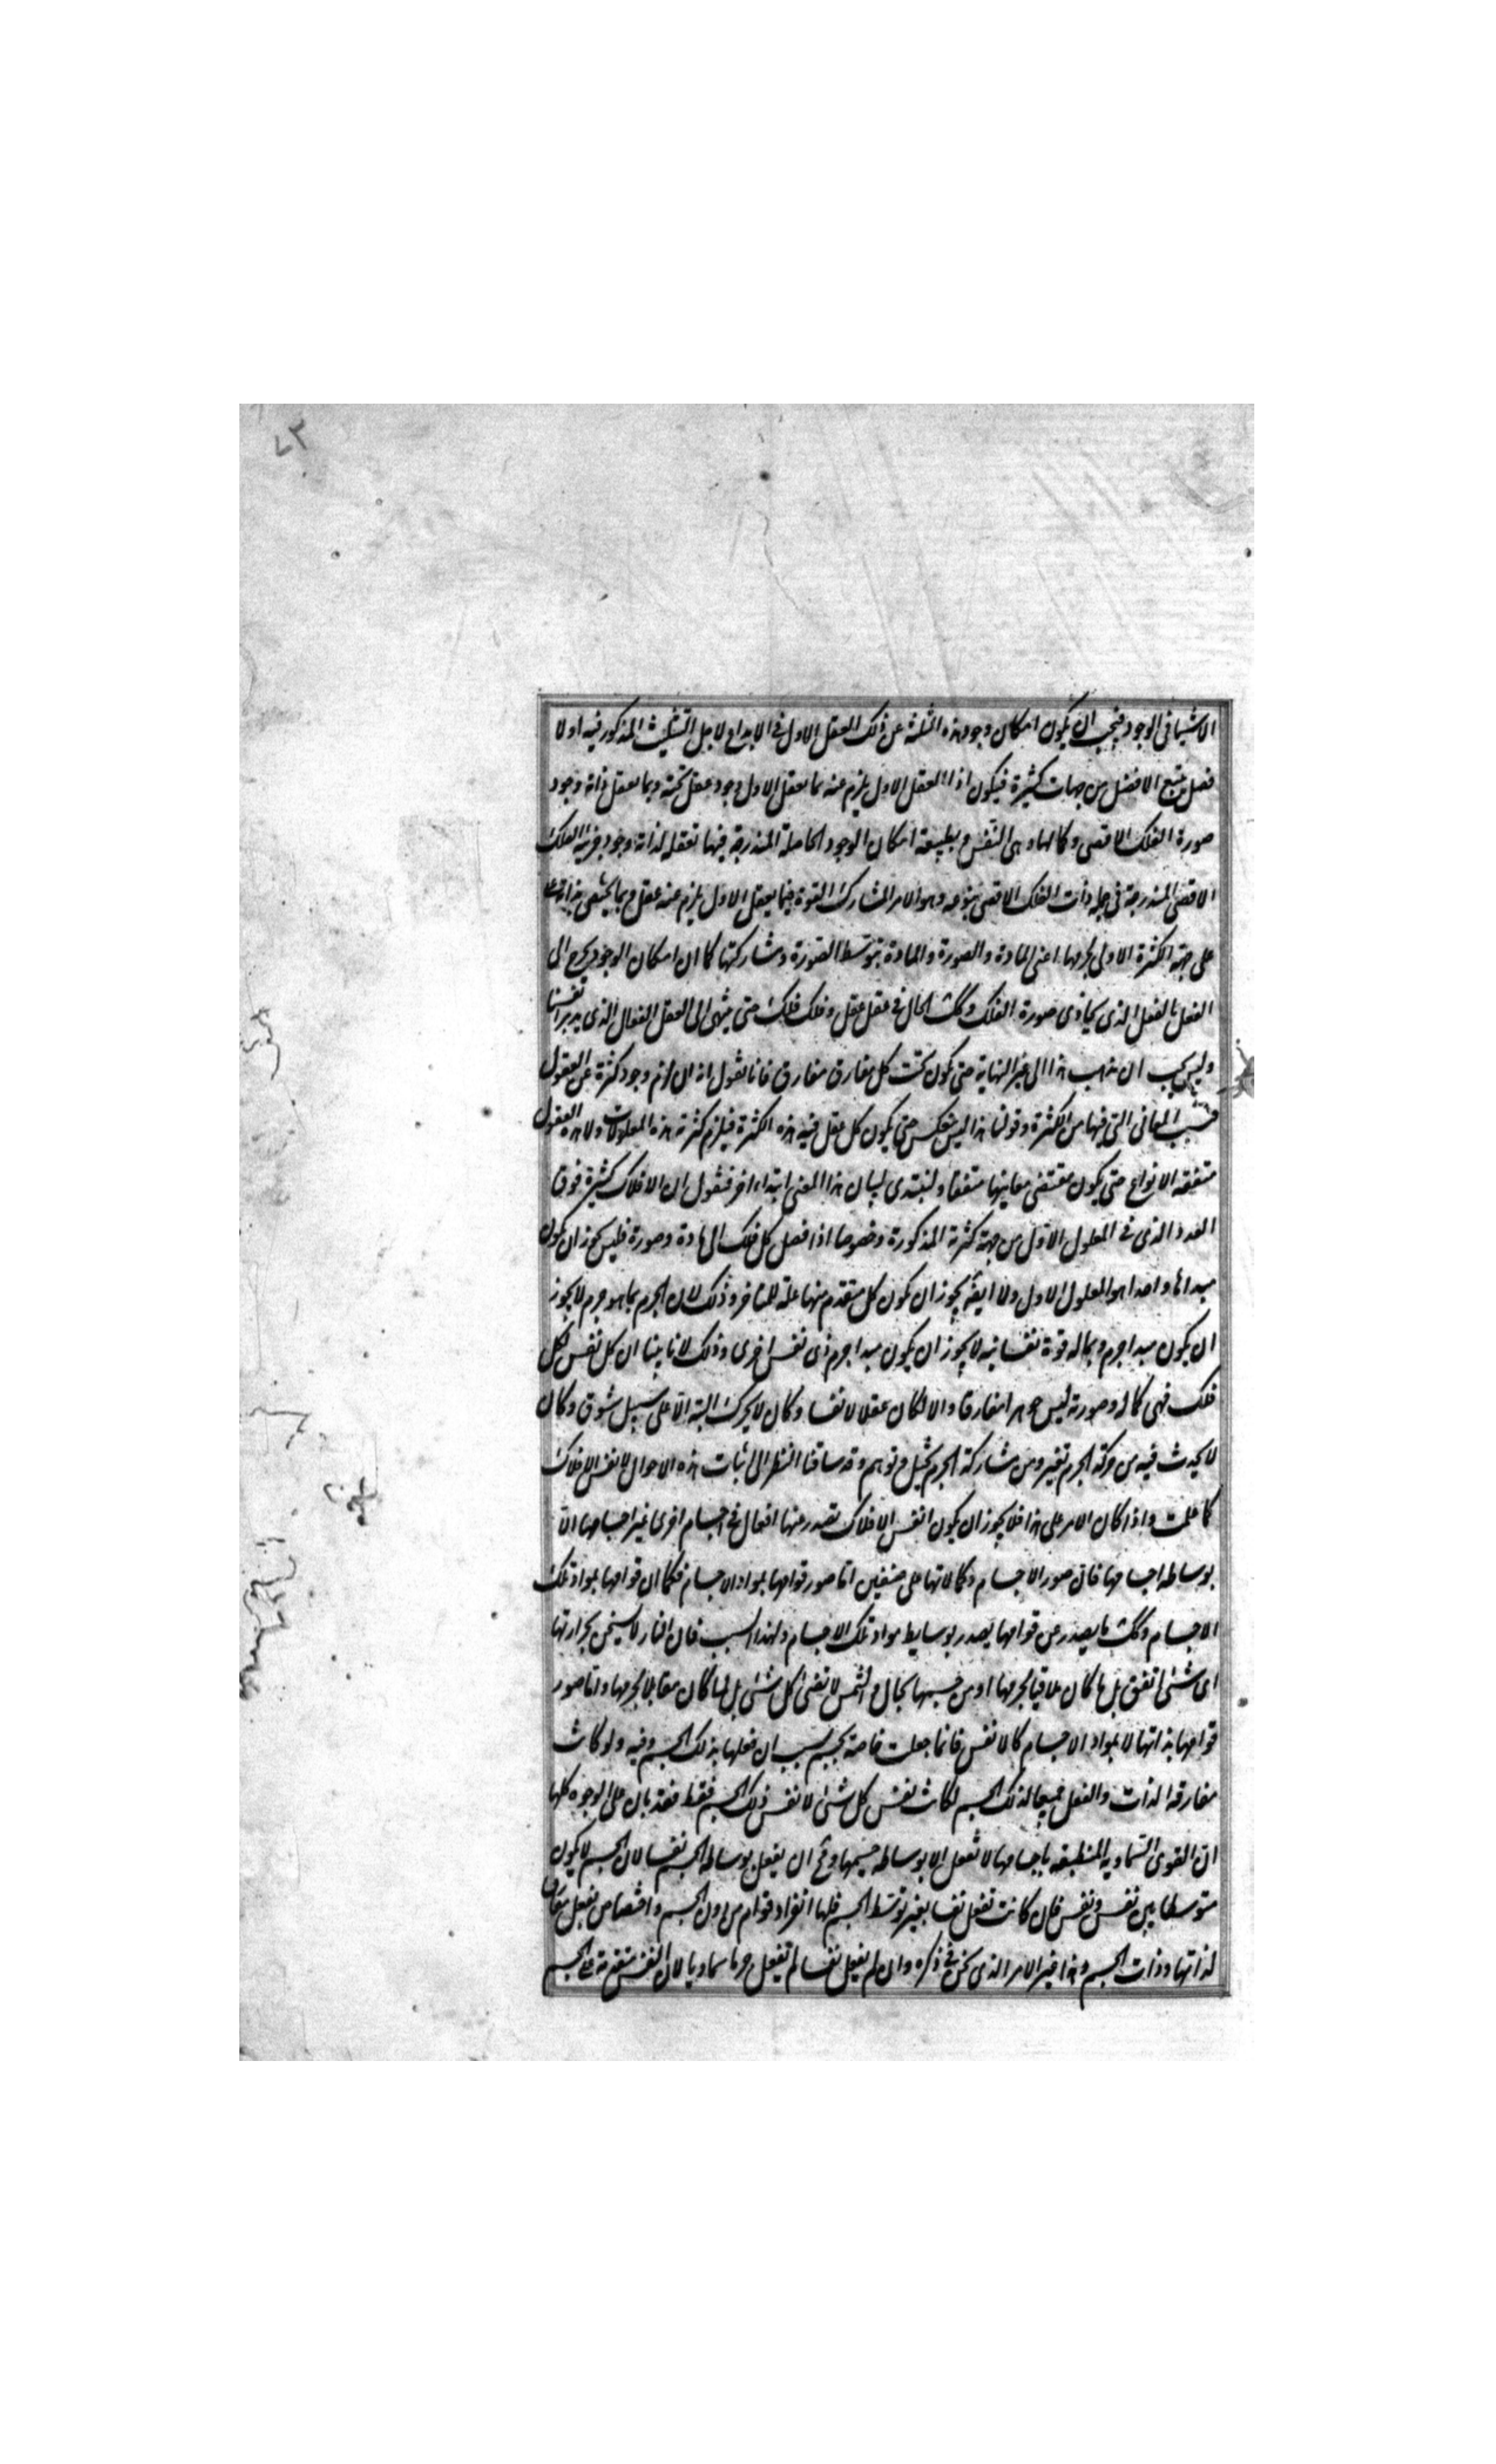 الاشيا فى الوجود فيجب ان يكون امكان وجود هذه الثلثة عن ذلك العقل الاول فى الابداع لاجل التثليث المذكور فيه اولا
فضل يتبع الافضل من جهات كثيرة فيكون اذا العقل الاول يلزم عنه بما يعقل الاول وجود عقل تحته وبما يعقل ذاته وجود
صورة الفلك الاقصى وكمالها وهى النفس وبطبيعة امكان الوجود الحاصلة المندرجة فيها تعقله لذاته وجود جرمية الفلك
الاقصى المندرجة فى جملة ذات الفلك الاقصى بنوعه وهو الامر المشارك للقوة فبما يعقل الاول يلزم عنه عقل وبما يختص بذاته
على جهة الكثرة الاولى بجرمها اعنى المادة والصورة والمادة بتوسط الصورة ومشاركتها كما ان امكان الوجود يخرج الى
الفعل بالفعل الذى يحاذى صورة الفلك وكك الحال فى عقل عقل وفلك فلك حتى ينتهى الى العقل الفعال الذى يدبر انفسنا
وليس يجب ان يذهب هذا الى غير النهاية حتى يكون تحت كل مفارق مفارق فانا نقول انه ان لزم وجود كثرة عن العقول
فبسبب المعانى التى فيها من الكثرة وقولنا هذا ليس ينعكس حتى يكون كل عقل فيه هذه الكثرة فيلزم كثرته هذه المعلولات ولا هذه العقول
متفقة الانواع حتى يكون مقتضى معانيها متفقا ولنبتدى لبيان هذا المعنى ابتداء اخر فنقول ان الافلاك كثيرة فوق
العدد الذى فى المعلول الاول من جهة كثرته المذكورة وخصوصا اذا فصل كل فلك الى مادة وصورة فليس يجوز ان يكون
مبداها واحدا هو المعلول الاول ولا ايضا يجوز ان يكون كل متقدم منها علة للمتاخر وذلك لان الجرم بما هو جرم لا يجوز
ان يكون مبدا جرم وبما له قوة نفسانية لا يجوز ان يكون مبدا جرم ذى نفس اخرى وذلك لانا بينا ان كل نفس لكل
فلك فهى كماله وصورته ليس جوهرا مفارقا والا لكان عقلا لا نفسا وكان لا يحرك البتة الا على سبيل شوق وكان
لا يحدث فيه من حركة الجرم تغير ومن مشاركة الجرم تخيل وتوهم وقد ساقنا النظر الى اثبات هذه الاحوال لانفس الافلاك
كما علمت واذا كان الامر على هذا فلا يجوز ان يكون انفس الافلاك تصدر عنها افعال فى اجسام اخرى غير اجسامها الا
بوساطة اجسامها فان صور الاجسام وكمالاتها على صنفين اما صور قوامها بمواد الاجسام فكما ان قوامها بمواد تلك
الاجسام وكك ما يصدر عن قوامها يصدر بوسايط مواد تلك الاجسام ولهذا السبب فان النار لا يسخن بحرارتها
اى شئ اتفق بل ما كان ملاقيا لجرمها او من جسمها بحال والشمس لا تضئ كل شئ بل لما كان مقابلا لجرمها واما صور
قوامها بذاتها لا بمواد الاجسام كالانفس فانما جعلت خاصة بجسم بسبب ان فعلها بذلك الجسم وفيه ولو كانت
مفارقة الذات والفعل جميعا لذلك الجسم لكانت نفس كل شئ لا نفس ذلك الجسم فقط فقد بان على الوجوه كلها
ان القوى السماوية المنطبعة باجسامها لا تفعل الا بوساطة جسمها ومح ان يفعل بوساطة الجسم نفسا لان الجسم لا يكون
متوسطا بين نفس ونفس فان كانت تفعل نفسا بغير توسط الجسم فلها انفراد قوام من دون الجسم واختصاص بفعل مفارق
لذاتها وذات الجسم وهذا غير الامر الذى نحن فى ذكره وان لم يفعل نفسا لم يفعل جرما سماويا لان النفس متقدمة على الجسم